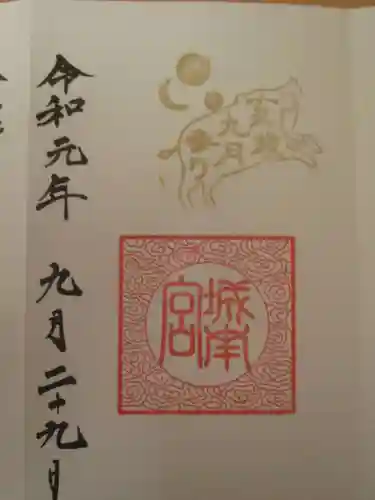 九月
城南
宮
令和元年 九月二十九日